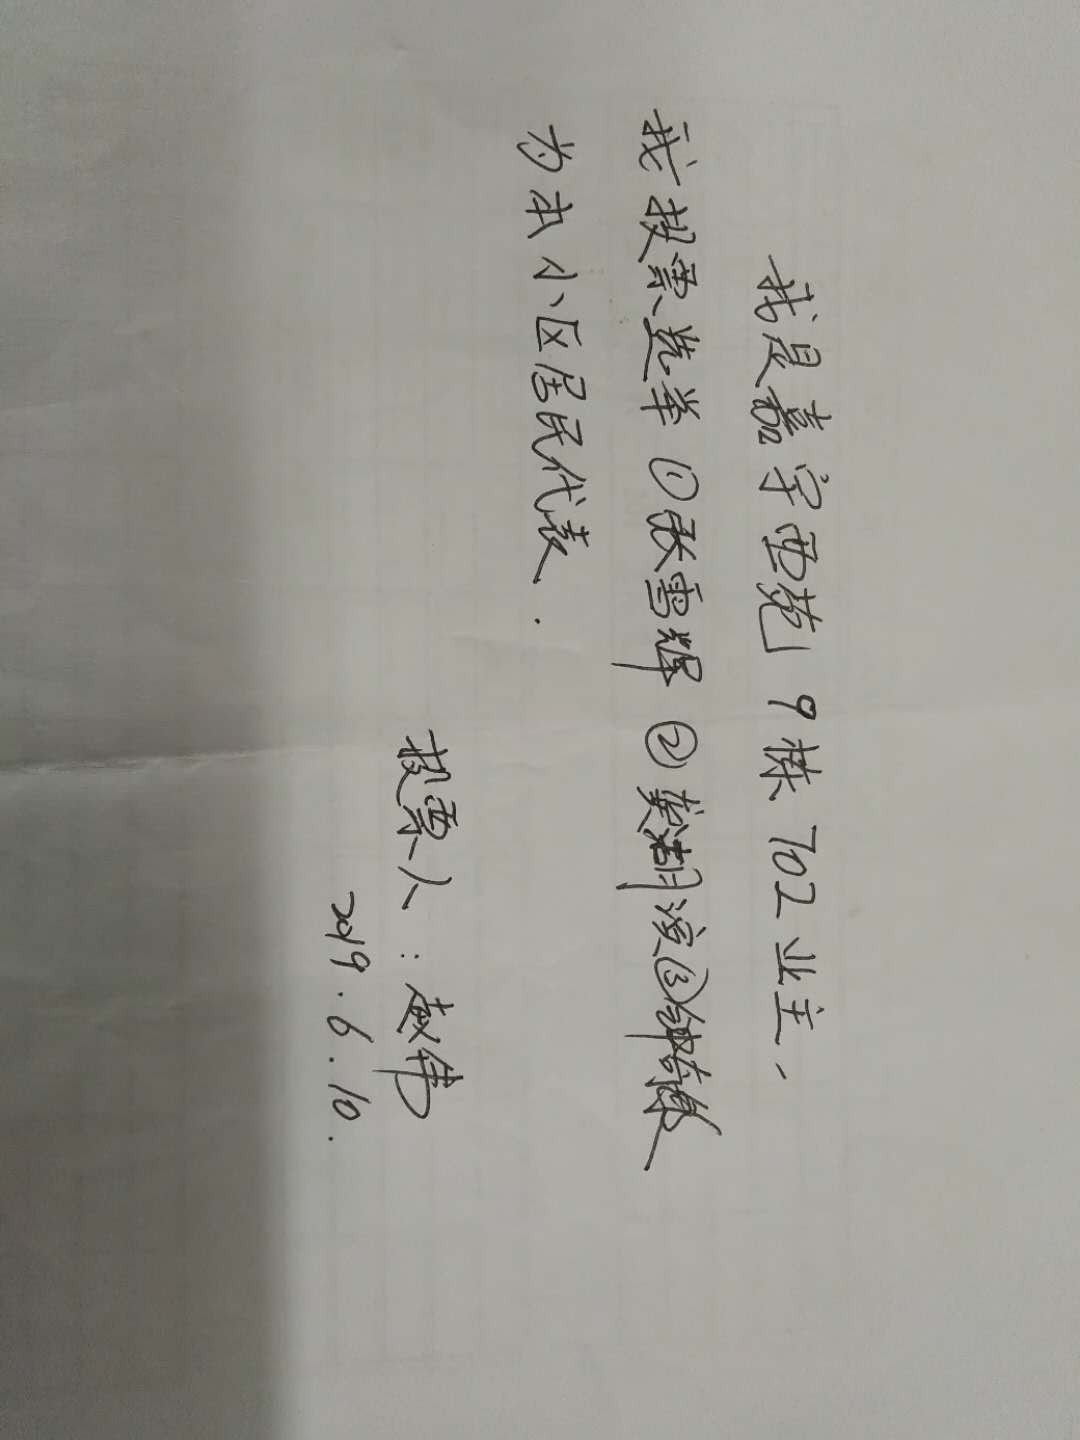 我是嘉宇西苑9栋702业主、
我投票选举①张雪辉②龚湖滨③钟
为本小区居民代表.
投票人:赵伟
2019.6.10.